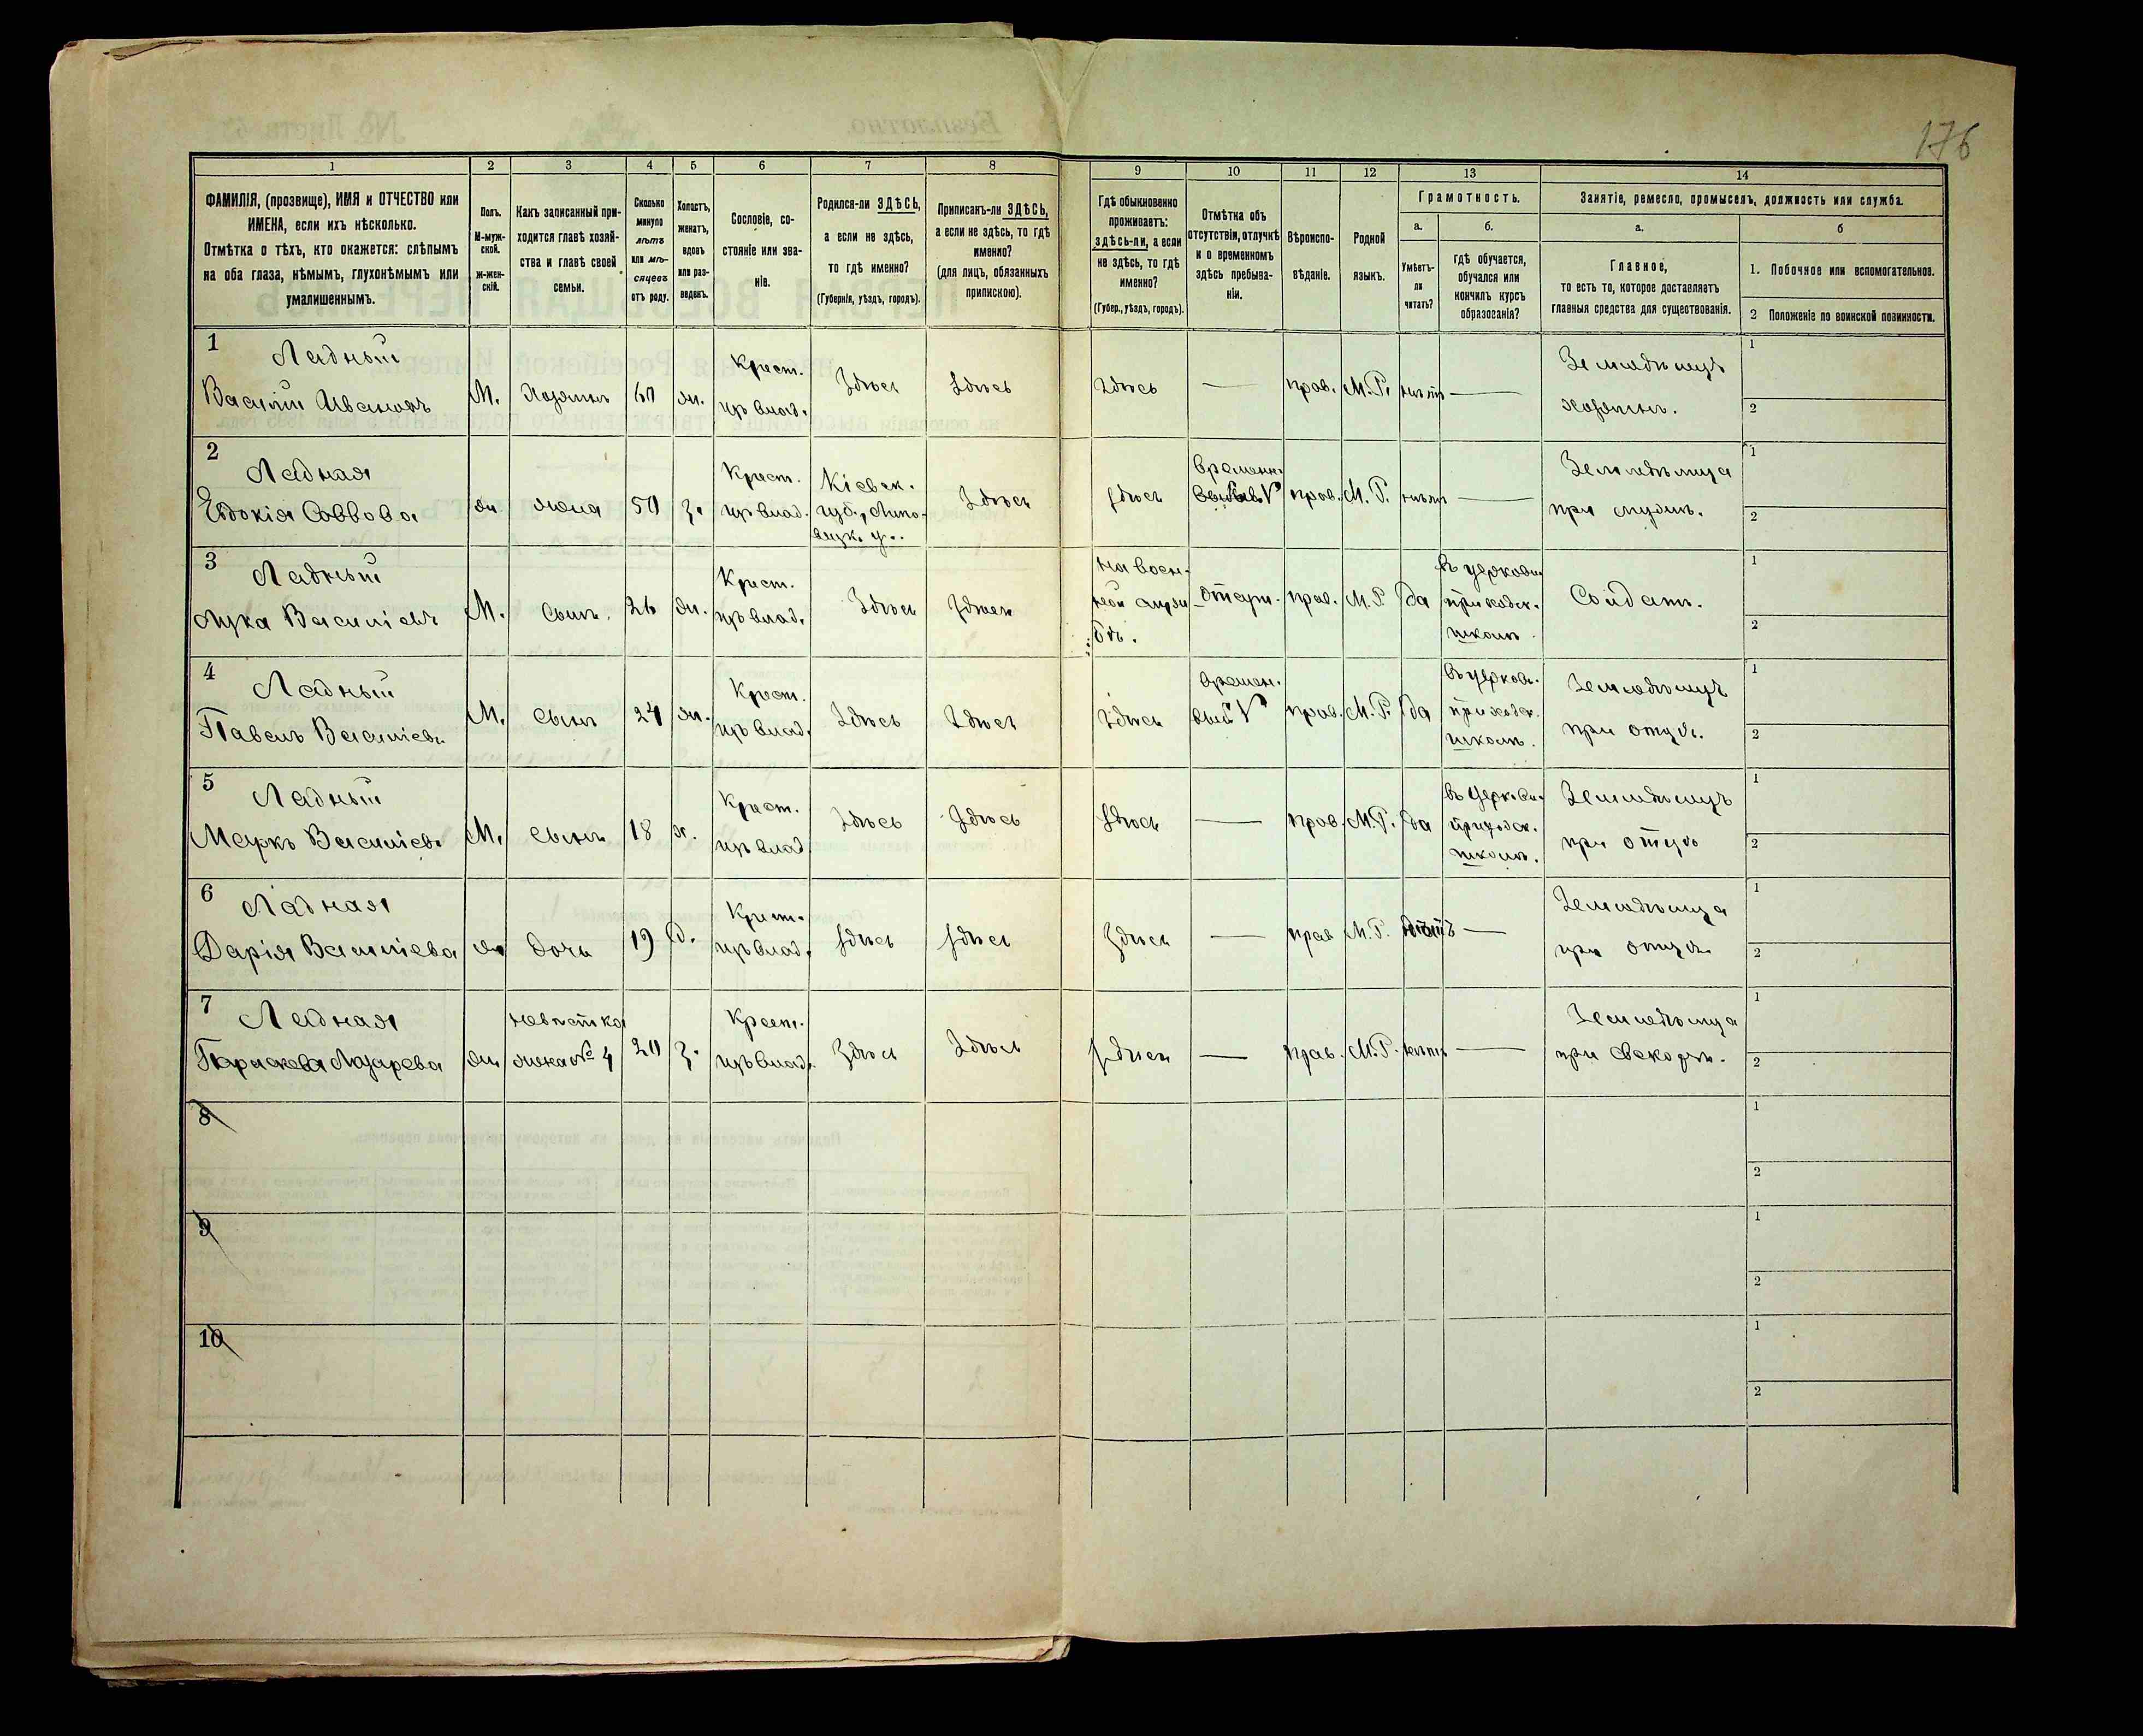 176
1 2 3 4 5 6 7 8 9 10 11 12 13 14
ФАМИЛІЯ, (прозвище), ИМЯ и ОТЧЕСТВО или
ИМЕНА, если ихъ нѣсколько.
Отмѣтка о тѣхъ, кто окажется: слѣпымъ
на оба глаза, нѣмымъ, глухонѣмымъ или
умалишеннымъ.
Полъ.
М-муж-
ской.
Ж-жен-
скій.
Какъ записанный при-
ходится главѣ хозяй-
ства и главѣ своей
семьи.
Сколько
минуло
лѣтъ
или мѣ-
сяцевъ
отъ роду.
Холостъ,
женатъ,
вдовъ
или раз-
веденъ.
Сословіе, со-
стояніе или зва-
ніе.
Родился-ли ЗДѢСЬ,
а если не здѣсь,
то гдѣ именно?
(Губернія, уѣздъ, городъ).
Приписанъ-ли ЗДѢСЬ,
а если не здѣсь, то гдѣ
именно?
(для лицъ, обязанныхъ
припискою).
Гдѣ обыкновенно
проживаетъ:
здѣсь-ли, а если
не здѣсь, то гдѣ
именно?
(Губер., уѣздъ, городъ).
Отмѣтка объ
отсутствіи, отлучкѣ
и о временномъ
здѣсь пребыва-
ніи.
Вѣроиспо-
вѣданіе.
Родной
языкъ.
Грамотность.
а.
Умѣетъ-
ли
читать?
б.
гдѣ обучается,
обучался или
кончилъ курсъ
образованія?
Занятіе, ремесло, промыселъ, должность или служба.
а.
Главное,
то есть то, которое доставляетъ
главныя средства для существованія.
б
1. Побочное или вспомогательное.
2 Положеніе по воинской повинности.
1
Ладный
Василій Ивановъ
М.
Хозяинъ
60
ж.
Крест.
цръ влад.
Здѣсь
Здѣсь
Здѣсь
—
прав.
М.Р.
нѣтъ
—
Земледѣлецъ
хозяинъ.
1
2
2
Ладная
Евдокія Саввова
ж
жена
50
з.
Крест.
цръ влад.
Кіевск.
губ., Липо-
вецк. у.
Здѣсь
Здѣсь
Временн.
прав.
М.Р.
нѣтъ
—
Земледѣлица
при мужѣ.
1
2
3
Ладный
Лука Василіевъ
М.
Сынъ.
26
ж.
Крест.
цръ влад.
Здѣсь
Здѣсь
На воен-
ной служ
бѣ.
отсут.
прав.
М.Р.
да
въ церковн.
приходск.
школѣ.
Солдатъ.
1
2
4
Ладный
Павелъ Василіевъ
М.
Сынъ
24
ж.
Крест.
цръ влад.
Здѣсь
Здѣсь
Здѣсь
времен.
прав.
М.Р.
да
въ церковн.
приходск.
школѣ.
Земледѣлецъ
при отцѣ.
1
2
5
Ладный
Маркъ Василіевъ
М.
Сынъ
18
х.
Крест.
цръ влад
Здѣсь
Здѣсь
Здѣсь
—
прав.
М.Р.
да
въ церковн.
приходск.
школѣ.
Земледѣлецъ
при отцѣ
1
2
6
Ладная
Дарія Василіева
ж
дочь
19
д.
Крест.
цръ влад.
Здѣсь
Здѣсь
Здѣсь
—
прав
М.Р.
нѣтъ
—
Земледѣлица
при отцѣ
1
2
7
Ладная
Параскева Лазарева
ж
невѣстка
жена № 4
20
з.
Крест.
цръ влад.
Здѣсь
Здѣсь
Здѣсь
—
прав.
М.Р.
нѣтъ
—
Земледѣлица
при свекорѣ.
1
2
8
1
2
9
1
2
10
1
2